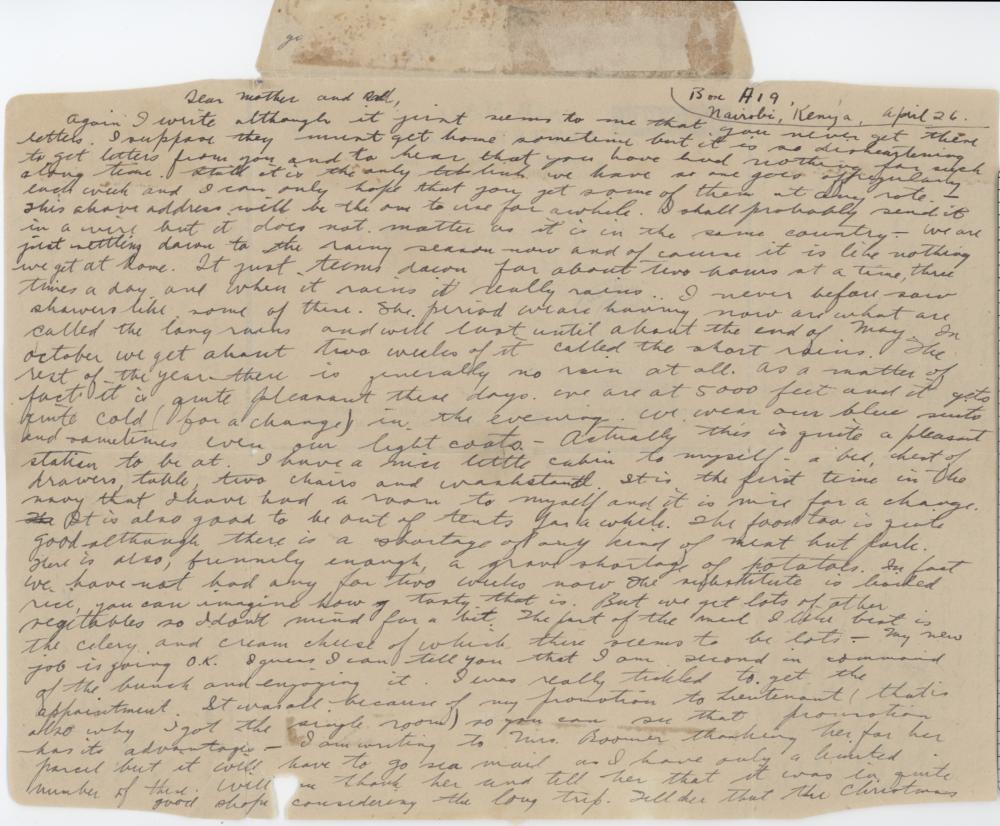 ge
Dear mother and all,
Box A19,
Nairobi, Kenya, April 26.
Again I write although it just seems to me that you never get these
letters. I suppose they must get home sometime but it is so disheartening
to get letters from you and to hear that you have had nothing such
along time. Still it is the only link we have so one goes off regularly
each week and I can only hope that you get some of them at any rate. —
This above address will be the one to use for awhile. I shall probably send it
in a wire but it does not matter as it is in the same country — We are
just settling down to the rainy season now and of course it is like nothing
we get at home. It just teems down for about two hours at a time, three
times a day and when it rains it really rains.. I never before saw
showers like some of these. The period we are having now are what are
called the long rains and will last until about the end of May. In
October we get about two weeks of it called the short rains. The
rest of the year there is generally no rain at all. As a matter of
fact it is quite pleasant these days. We are at 5000 feet and it gets
quite cold (for a change) in the evening. We wear our blue suits
and sometimes even our light coats. — Actually this is quite a pleasant
station to be at. I have a nice little cabin to myself, a bed, chest of
drawers, table, two chairs and washstand. It is the first time in the
navy that I have had a room to myself and it is nice for a change.
It is also good to be out of tents for a while. The food too is quite
good although there is a shortage of any kind of meat but pork.
There is also, funnily enough, a grave shortage of potatoes. In fact
we have not had any for two weeks now. The substitute is boiled
rice, you can imagine how tasty that is. But we get lots of other
vegetables so I don't mind for a bit. The part of the meal I like best is
the celery and cream cheese of which there seems to be lots — My new
job is going O.K. I guess I can tell you that I am second in command
of the bunch and enjoying it. I was really tickled to get the
appointment. It was all because of my promotion to lieutenant (that's
also why I got the single room) so you can see that promotion
has its advantages — I am writing to Mrs. Boomer thanking her for her
parcel but it will have to go sea mail as I have only a limited
number of these. Will thank her and tell her that it was in quite
good shape considering the long trip. Tell her that the Christmas